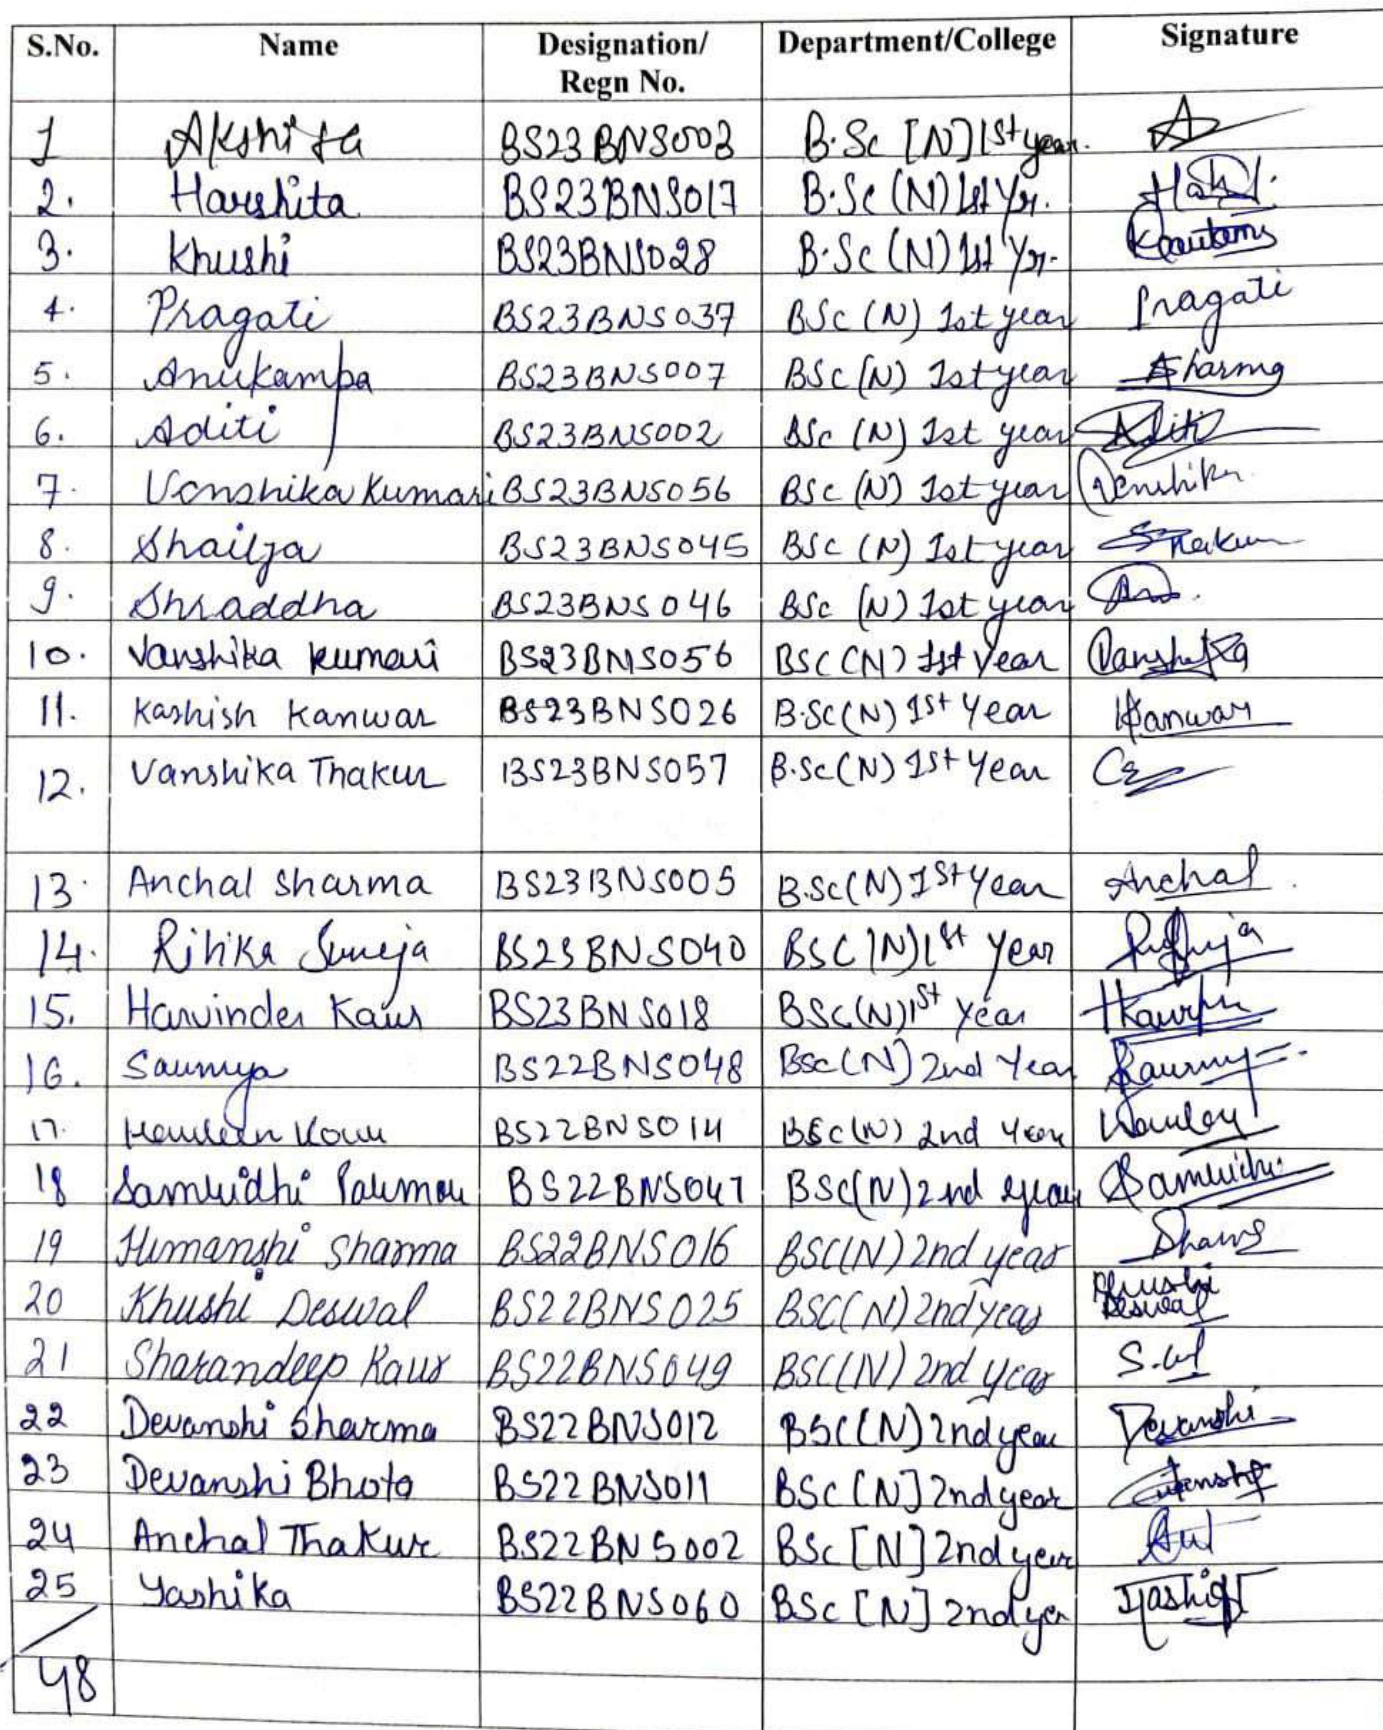 S.No. Name Designation/ Regn No. Department/College Signature
1 Akshita BS23BNS003 B.Sc [N] 1st year.
2. Harshita BS23BNS017 B.Sc (N) 1st Yr.
3. Khushi BS23BNS028 B.Sc (N) 1st Yr. Gautam
4. Pragati BS23BNS037 BSc (N) 1st year Pragati
5. Anukampa BS23BNS007 BSc (N) 1st year Sharma
6. Aditi BS23BNS002 BSc (N) 1st year Aditi
7. Vanshika Kumari BS23BNS056 BSc (N) 1st year Vanshika
8. Shailja BS23BNS045 BSc (N) 1st year
9. Shraddha BS23BNS046 BSc (N) 1st year
10. Vanshika Kumari BS23BNS056 BSC (N) 1st Year Vanshika
11. Kashish Kanwar BS23BNS026 B.Sc(N) 1st Year Kanwar
12. Vanshika Thakur BS23BNS057 B.Sc(N) 1st Year
13. Anchal Sharma BS23BNS005 B.Sc(N) 1st Year Anchal
14. Ritika Suneja BS23BNS040 BSC (N) 1st Year
15. Harvinder Kaur BS23BNS018 BSc(N) 1st Year
16. Saumya BS22BNS048 BSC(N) 2nd Year
17. BS22BNS014 BSc(N) 2nd Year
18 Samridhi Parmar BS22BNS047 BSC(N) 2nd year Samridhi
19 Himanshi Sharma BS22BNS016 BSC(N) 2nd year
20 Khushi Deswal BS22BNS025 BSC(N) 2nd year Khushi Deswal
21 Sharandeep Kaur BS22BNS049 BSC(N) 2nd year
22 Devanshi Sharma BS22BNS012 BSC(N) 2nd year Devanshi
23 Devanshi Bhota BS22BNS011 BSC [N] 2nd year
24 Anchal Thakur BS22BNS002 BSc [N] 2nd year
25 Yashika BS22BNS060 BSc [N] 2nd yer
48